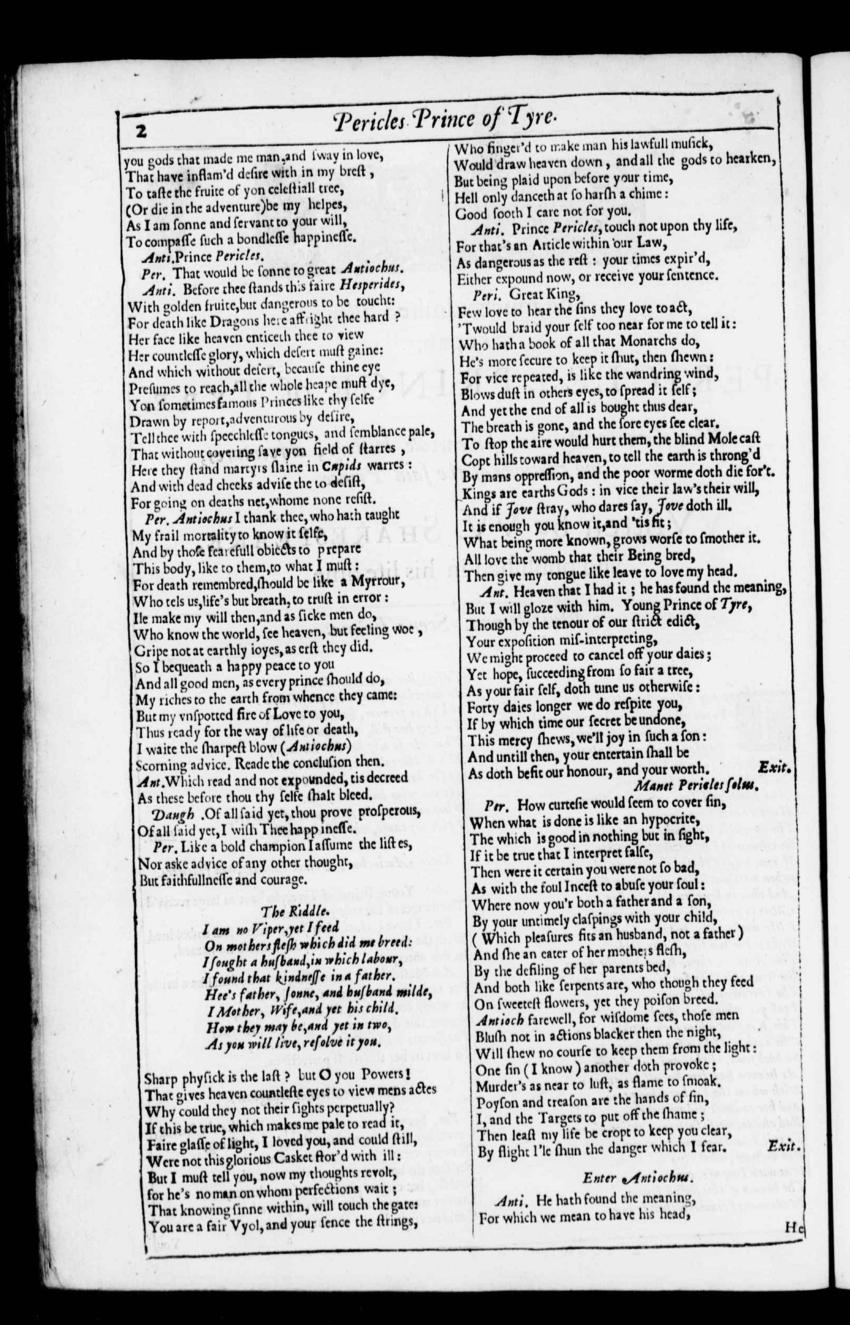 2
Pericles Prince of Tyre.
you gods that made me man,and ſway in love,
That have inflam'd deſire with in my breſt ,
To taſte the fruite of yon celeſtiall tree,
(Or die in the adventure)be my helpes,
As I am ſonne and ſervant to your will,
To compaſſe ſuch a bondleſſe happineſſe.
Anti.Prince Pericles.
Per. That would be ſonne to great Antiochus.
Anti. Before thee ſtands this faire Hesperides,
With golden fruite,but dangerous to be toucht:
For death like Dragons here affright thee hard ?
Her face like heaven enticeth thee to view
Her countleſſe glory, which deſert muſt gaine:
And which without deſert, becauſe thine eye
Preſumes to reach,all the whole heape muſt dye,
Yon ſometimes famous Princes like thy ſelfe
Drawn by report,adventurous by deſire,
Tell thee with ſpeechleſſe tongues, and ſemblance pale,
That without covering ſave yon field of ſtarres ,
Here they ſtand martyrs ſlaine in Cupids warres :
And with dead cheeks adviſe the to deſiſt,
For going on deaths net,whome none reſiſt.
Per. Antiochus I thank thee, who hath taught
My frail mortality to know it ſelfe,
And by thoſe fearefull obiects to prepare
This body, like to them,to what I muſt :
For death remembred,ſhould be like a Myrrour,
Who tels us,life's but breath, to truſt in error :
Ile make my will then,and as ſicke men do,
Who know the world, ſee heaven, but feeling woe ,
Gripe not at earthly ioyes, as erſt they did.
So I bequeath a happy peace to you
And all good men, as every prince ſhould do,
My riches to the earth from whence they came:
But my vnſpotted fire of Love to you,
Thus ready for the way of life or death,
I waite the ſharpeſt blow (Antiochus)
Scorning advice. Reade the concluſion then.
Ant.Which read and not expounded, tis decreed
As theſe before thou thy ſelfe ſhalt bleed.
Daugh .Of all ſaid yet, thou prove proſperous,
Of all ſaid yet, I wiſh Thee happineſſe.
Per. Like a bold champion I aſſume the liſtes,
Nor aske advice of any other thought,
But faithfullneſſe and courage.
The Riddle.
I am no Viper,yet I feed
On mothers fleſh which did me breed:
I ſought a huſband,in which labour,
I found that kindneſſe in a father.
Hee's father, ſonne, and huſband milde,
I Mother, Wife,and yet his child.
How they may be,and yet in two,
As you will live, reſolve it you.
Sharp phyſick is the laſt ? but O you Powers !
That gives heaven countleſſe eyes to view mens actes
Why could they not their ſights perpetually?
If this be true, which makes me pale to read it,
Faire glaſſe of light, I loved you, and could ſtill,
Were not this glorious Casket ſtor'd with ill :
But I muſt tell you, now my thoughts revolt,
for he's no man on whom perfections wait ;
That knowing ſinne within, will touch the gate:
You are a fair Vyol, and your ſence the ſtrings,
Who finger'd to make man his lawfull muſick,
Would draw heaven down , and all the gods to hearken,
But being plaid upon before your time,
Hell only danceth at ſo harſh a chime :
Good ſooth I care not for you.
Anti. Prince Pericles, touch not upon thy life,
For that's an Article within our Law,
As dangerous as the reſt : your times expir'd,
Either expound now, or receive your ſentence.
Peri. Great King,
Few love to hear the ſins they love to act,
'Twould braid your ſelf too near for me to tell it :
Who hath a book of all that Monarchs do,
He's more ſecure to keep it ſhut, then ſhewn :
For vice repeated, is like the wandring wind,
Blows duſt in others eyes, to ſpread it ſelf ;
And yet the end of all is bought thus dear,
The breath is gone, and the ſore eyes ſee clear.
To ſtop the aire would hurt them, the blind Mole caſt
Copt hills toward heaven, to tell the earth is throng'd
By mans oppreſſion, and the poor worme doth die for't.
Kings are earths Gods : in vice their law's their will,
And if Jove ſtray, who dares ſay, Jove doth ill.
It is enough you know it,and 'tis fit ;
What being more known, grows worſe to ſmother it.
All love the womb that their Being bred,
Then give my tongue like leave to love my head.
Ant. Heaven that I had it ; he has found the meaning,
But I will gloze with him. Young Prince of Tyre,
Though by the tenour of our ſtrict edict,
Your expoſition miſ-interpreting,
We might proceed to cancel off your daies ;
Yet hope, ſucceeding from ſo fair a tree,
As your fair ſelf, doth tune us otherwiſe :
Forty daies longer we do reſpite you,
If by which time our ſecret be undone,
This mercy ſhews, we'll joy in ſuch a ſon :
And untill then, your entertain ſhall be
As doth befit our honour, and your worth. Exit.
Manet Pericles ſolus.
Per. How curteſie would ſeem to cover ſin,
When what is done is like an hypocrite,
The which is good in nothing but in ſight,
If it be true that I interpret falſe,
Then were it certain you were not ſo bad,
As with the foul Inceſt to abuſe your ſoul :
Where now you'r both a father and a ſon,
By your untimely claſpings with your child,
( Which pleaſures fits an husband, not a father )
And ſhe an eater of her mothers fleſh,
By the defiling of her parents bed,
And both like ſerpents are, who though they feed
On ſweeteſt flowers, yet they poiſon breed.
Antioch farewell, for wiſdome ſees, thoſe men
Bluſh not in actions blacker then the night,
Will ſhew no courſe to keep them from the light :
One ſin ( I know ) another doth provoke ;
Murder's as near to luſt, as flame to ſmoak.
Poyſon and treaſon are the hands of ſin,
I, and the Targets to put off the ſhame ;
Then leaſt my life be cropt to keep you clear,
By flight I'le ſhun the danger which I fear. Exit.
Enter Antiochus.
Anti. He hath found the meaning,
For which we mean to have his head,
He